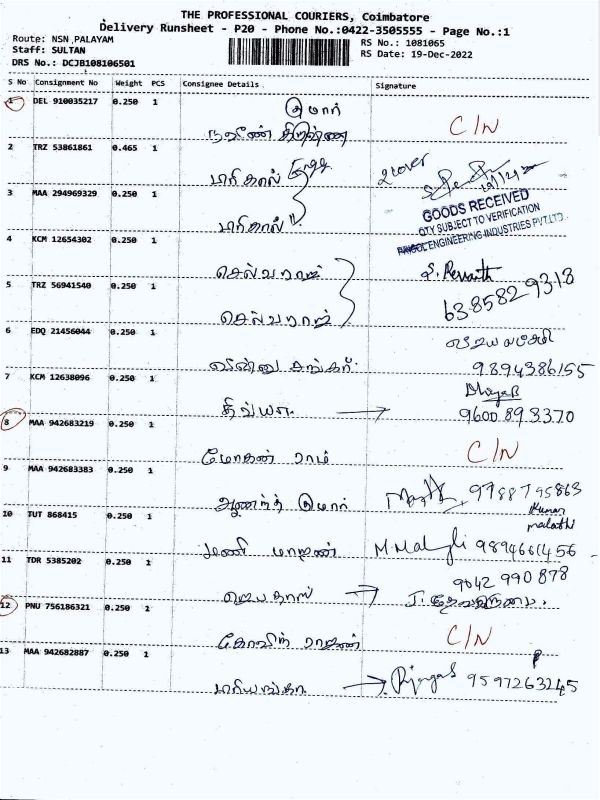 THE PROFESSIONAL COURIERS, Coimbatore
Delivery Runsheet - P20 - Phone No.:0422-3505555 - Page No.:1
Route: NSN PALAYAM
RS No.: 1081065
Staff: SULTAN
RS Date: 19-Dec-2022
DRS No.: DCJB108106501
S No Consignment No Weight PCS Consignee Details Signature
1 DEL 910035217 0.250 1 குமார்
நவீண் கிறிஷ்ண C/N
2 TRZ 53861861 0.465 1
பரிகால் 2 cover
GOODS RECEIVED
QTY SUBJECT TO VERIFICATION
ENGINEERING INDUSTRIES PVT.LTD.
3 MAA 294969329 0.250 1
பரிகால் "
4 KCM 12654302 0.250 1
செல்வராஜ்
5 TRZ 56941540 0.250 1 63 8582 9318
செல்வராஜ்
6 EDQ 21456044 0.250 1 விஜயலட்சுமி
விஷ்ணு சங்கர் 9894386155
7 KCM 12638096 0.250 1
திவ்யா 9600 893370
8 MAA 942683219 0.250 1
மோகன் ராம் C/N
9 MAA 942683383 0.250 1
ஆனந்த் குமார் 9788795863
Kumar
malathi
10 TUT 868415 0.250 1
மணி மாறன் 9894661456
11 TDR 5385202 0.250 1 9042 990 878
ஜெபதாஸ்
12 PNU 756186321 0.250 1
கோவிந் ராஜன் C/N
13 MAA 942682887 0.250 1
பரியங்கா 9597263245